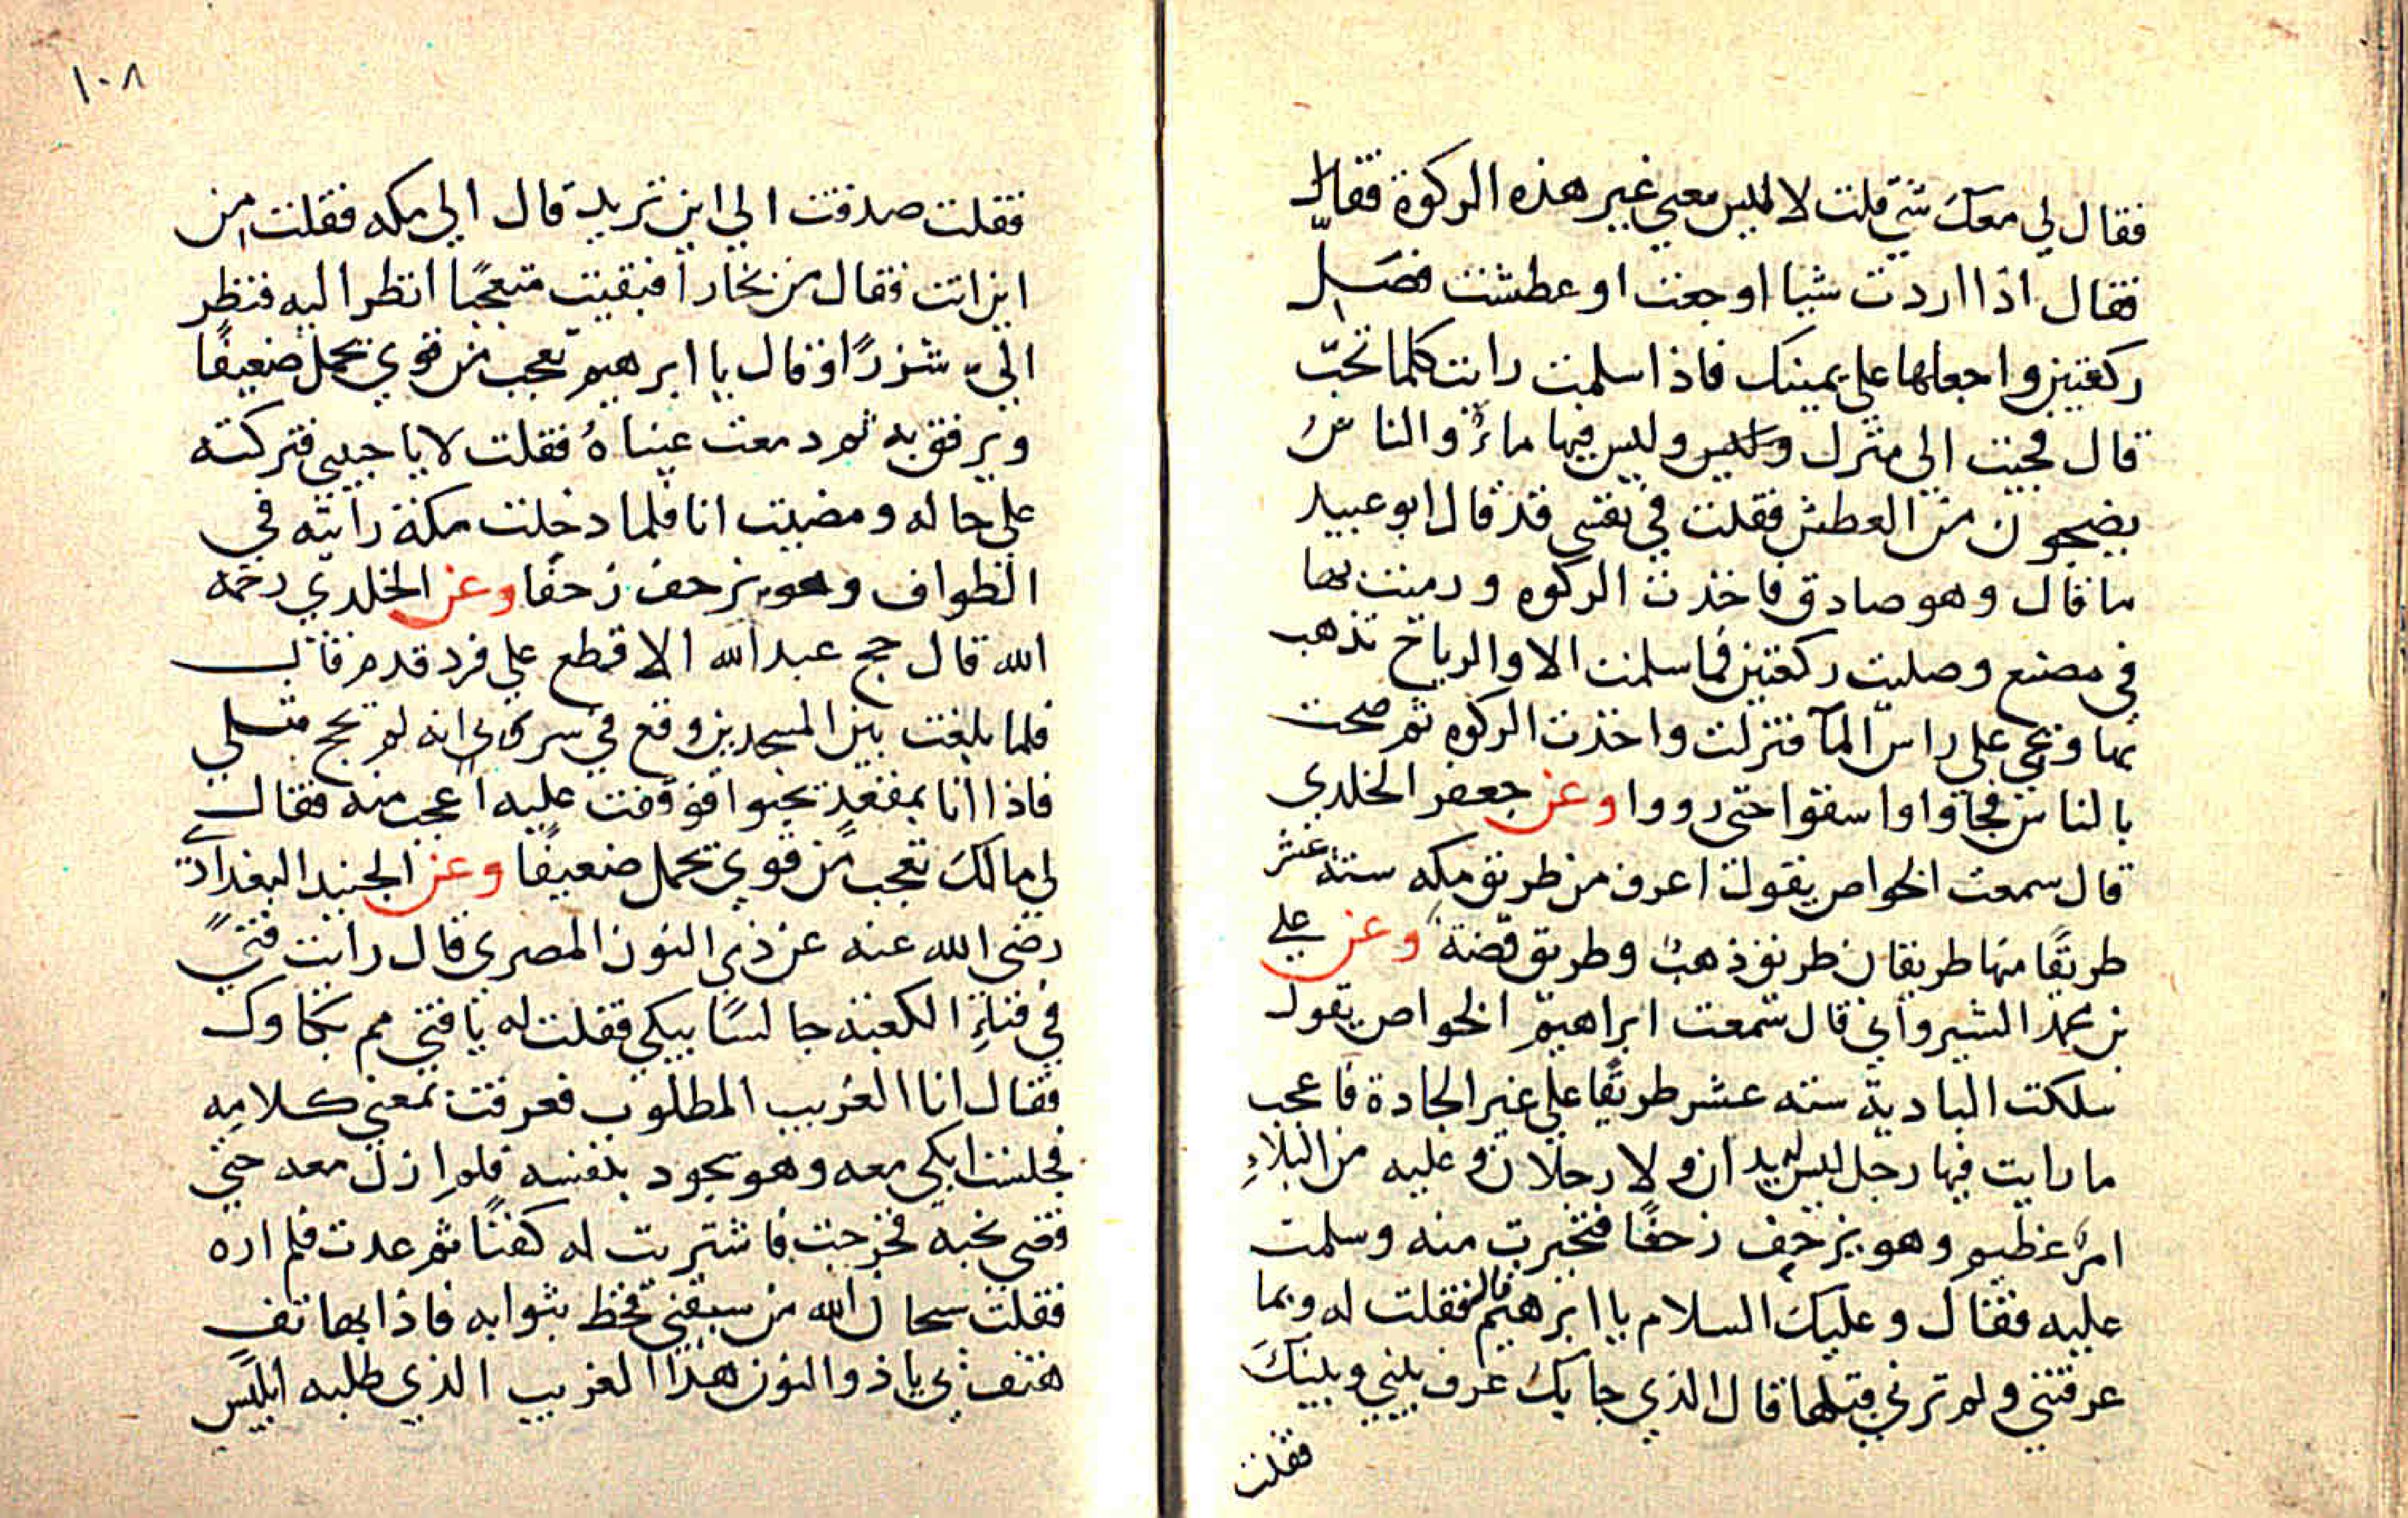 فقال لي معك شي قلت لا ليس معي غير هذه الركوة فقال
فقال اذا اردت شيا او جعت او عطشت فصل
ركعتين واجعلها علي يمينك فاذا سلمت رايت كلما تحب
قال فجيت الي منزل وليس فيها ماء والناس
يضجون من العطش فقلت في نفسي قد قال ابو عبيد
ما قال وهو صادق فاخذت الركوه ورميت بها
في مصنع وصليت ركعتين فما سلمت الا والرياح تذهب
بها وتجي علي راس المآ فنزلت واخذت الركوه ثم صحت
بالناس فجآوا واسقوا حتى رووا وعن جعفر الخلدي
قال سمعت الخواص يقول اعرف من طريق مكه ستة عشر
طريقًا منها طريقان طريق ذهب وطريق فضة وعن علي
بن محمد الشيرواني قال سمعت ابراهيم الخواص يقول
سلكت البادية سته عشر طريقًا علي غير الجادة فاعجب
ما رايت فيها رجل ليس له يدان ولا رجلان وعليه من البلاء
امر عظيم وهو يزحف زحفًا فتحيرت منه وسلمت
عليه فقال وعليك السلام يا ابرهيم قال فقلت له وبما
عرفتني ولم ترني قبلها قال الذي جا بك عرف بيني وبينك
فقلت
١٠٨
فقلت صدقت الي اين تريد قال الي مكه فقلت من
اين انت فقال من بخارا فبقيت متعجبًا انظر اليه فنظر
الي شزرًا وقال يا ابرهيم تعجب من قوي يحمل ضعيفًا
ويرفق به ثم دمعت عيناه فقلت لا يا حبيبي فتركته
علي حاله ومضيت انا فلما دخلت مكة رايته في
الطواف وهو يزحف زحفًا وعن الخلدي رحمه
الله قال حج عبد الله الاقطع علي فرد قدم قال
فلما بلغت بين المسجدين وقع في سري انه لم يحج مثلي
فاذا انا بمقعد يحبوا فوقفت عليه اعجب منه فقال
لي مالك تعجب من قوي يحمل ضعيفًا وعن الجنيد البغدادي
رضي الله عنه عن ذي النون المصري قال رايت فتيً
في فناء الكعبة جالسًا يبكي فقلت له يا فتي مم بكاوك
فقال انا الغريب المطلوب فعرفت بمعني كلامه
فجلست ابكي معه وهو يجود بنفسه فلم ازل معه حتي
قضي نحبه فخرجت فاشتريت له كفنًا ثم عدت فلم اره
فقلت سبحان الله من سبقني فحظ بثوابه فاذا بهاتف
هتف بي يا ذو النون هذا الغريب الذي طلبه ابليس